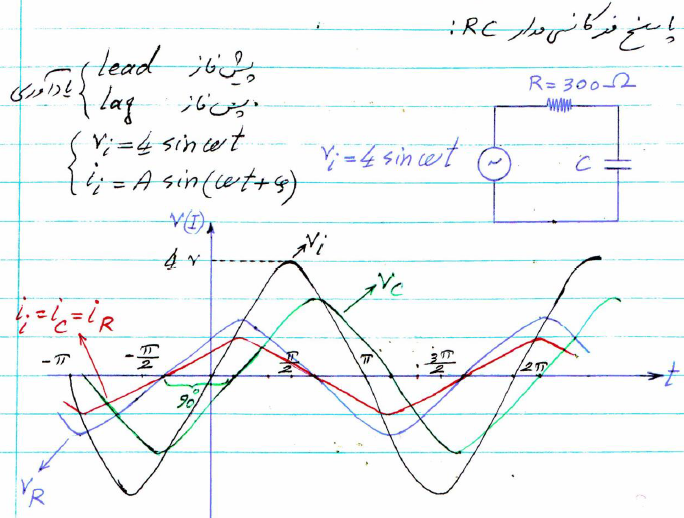 پاسخ فرکانسی مدار RC:
یادآوری { lead پیش فاز
lag پس فاز
R=300Ω
{ vᵢ=4 sin ωt
iᵢ = A sin(ωt+φ)
vᵢ=4 sin ωt
C
V(I)
4 v
vᵢ
v_C
iᵢ=i_C=i_R
-π
-π/2
π/2
π
3π/2
2π
t
90°
v_R